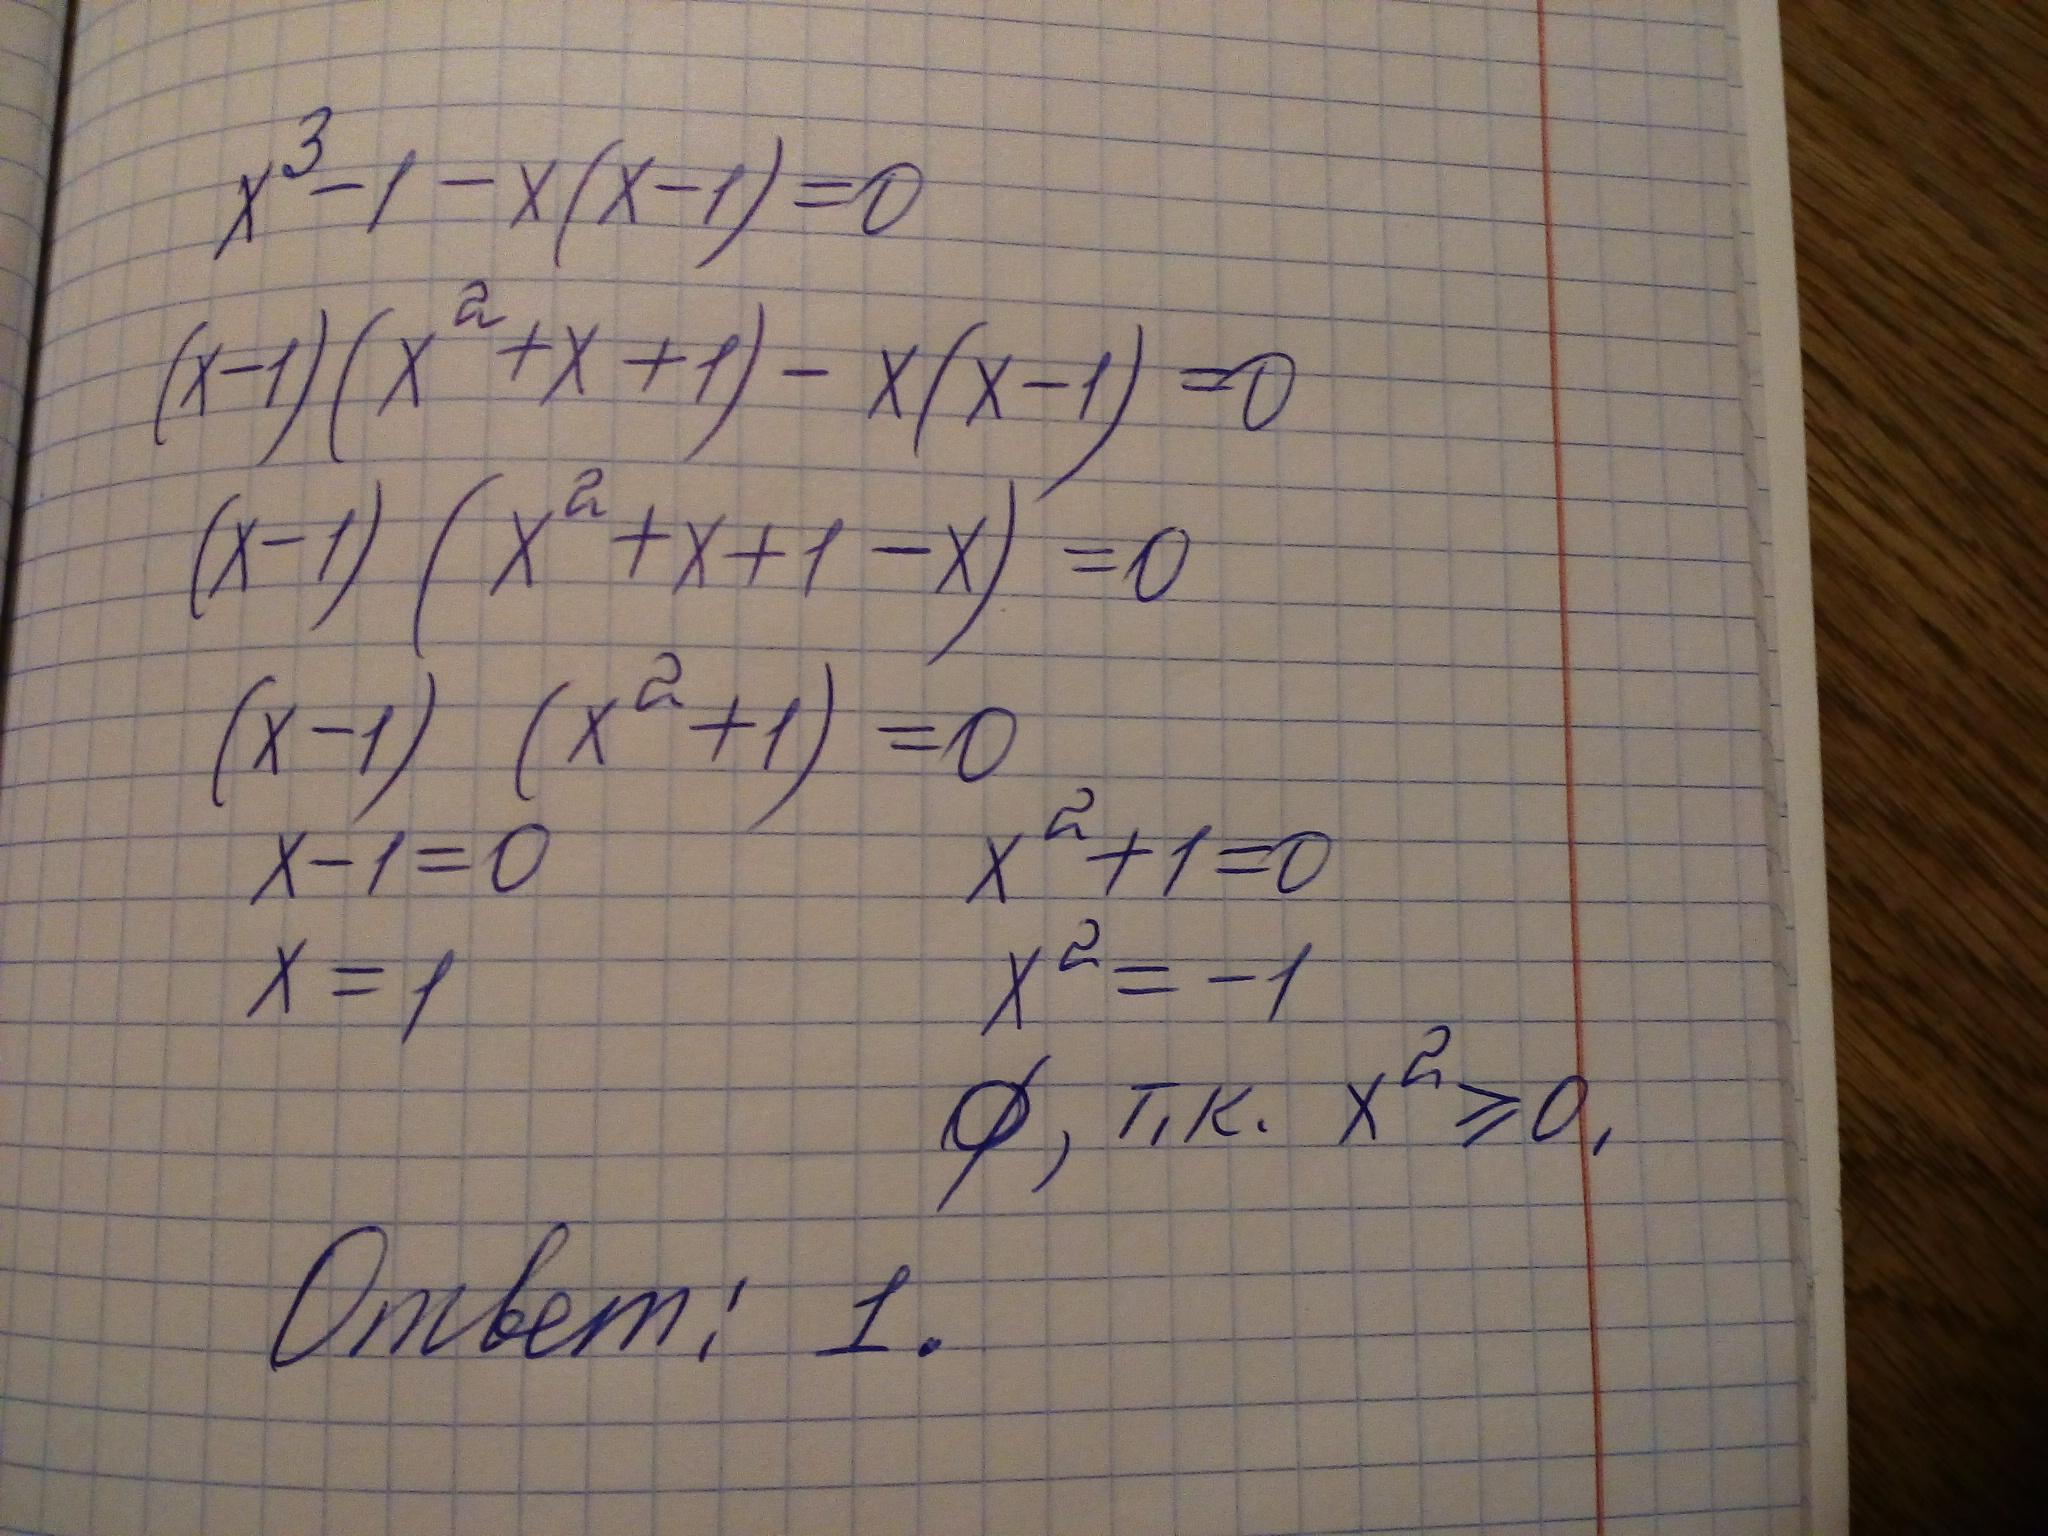 x³-1-x(x-1)=0
(x-1)(x²+x+1)-x(x-1)=0
(x-1)(x²+x+1-x)=0
(x-1) (x²+1)=0
x-1=0 x²+1=0
x=1 x²=-1
∅, т.к. x²≥0.
Ответ: 1.